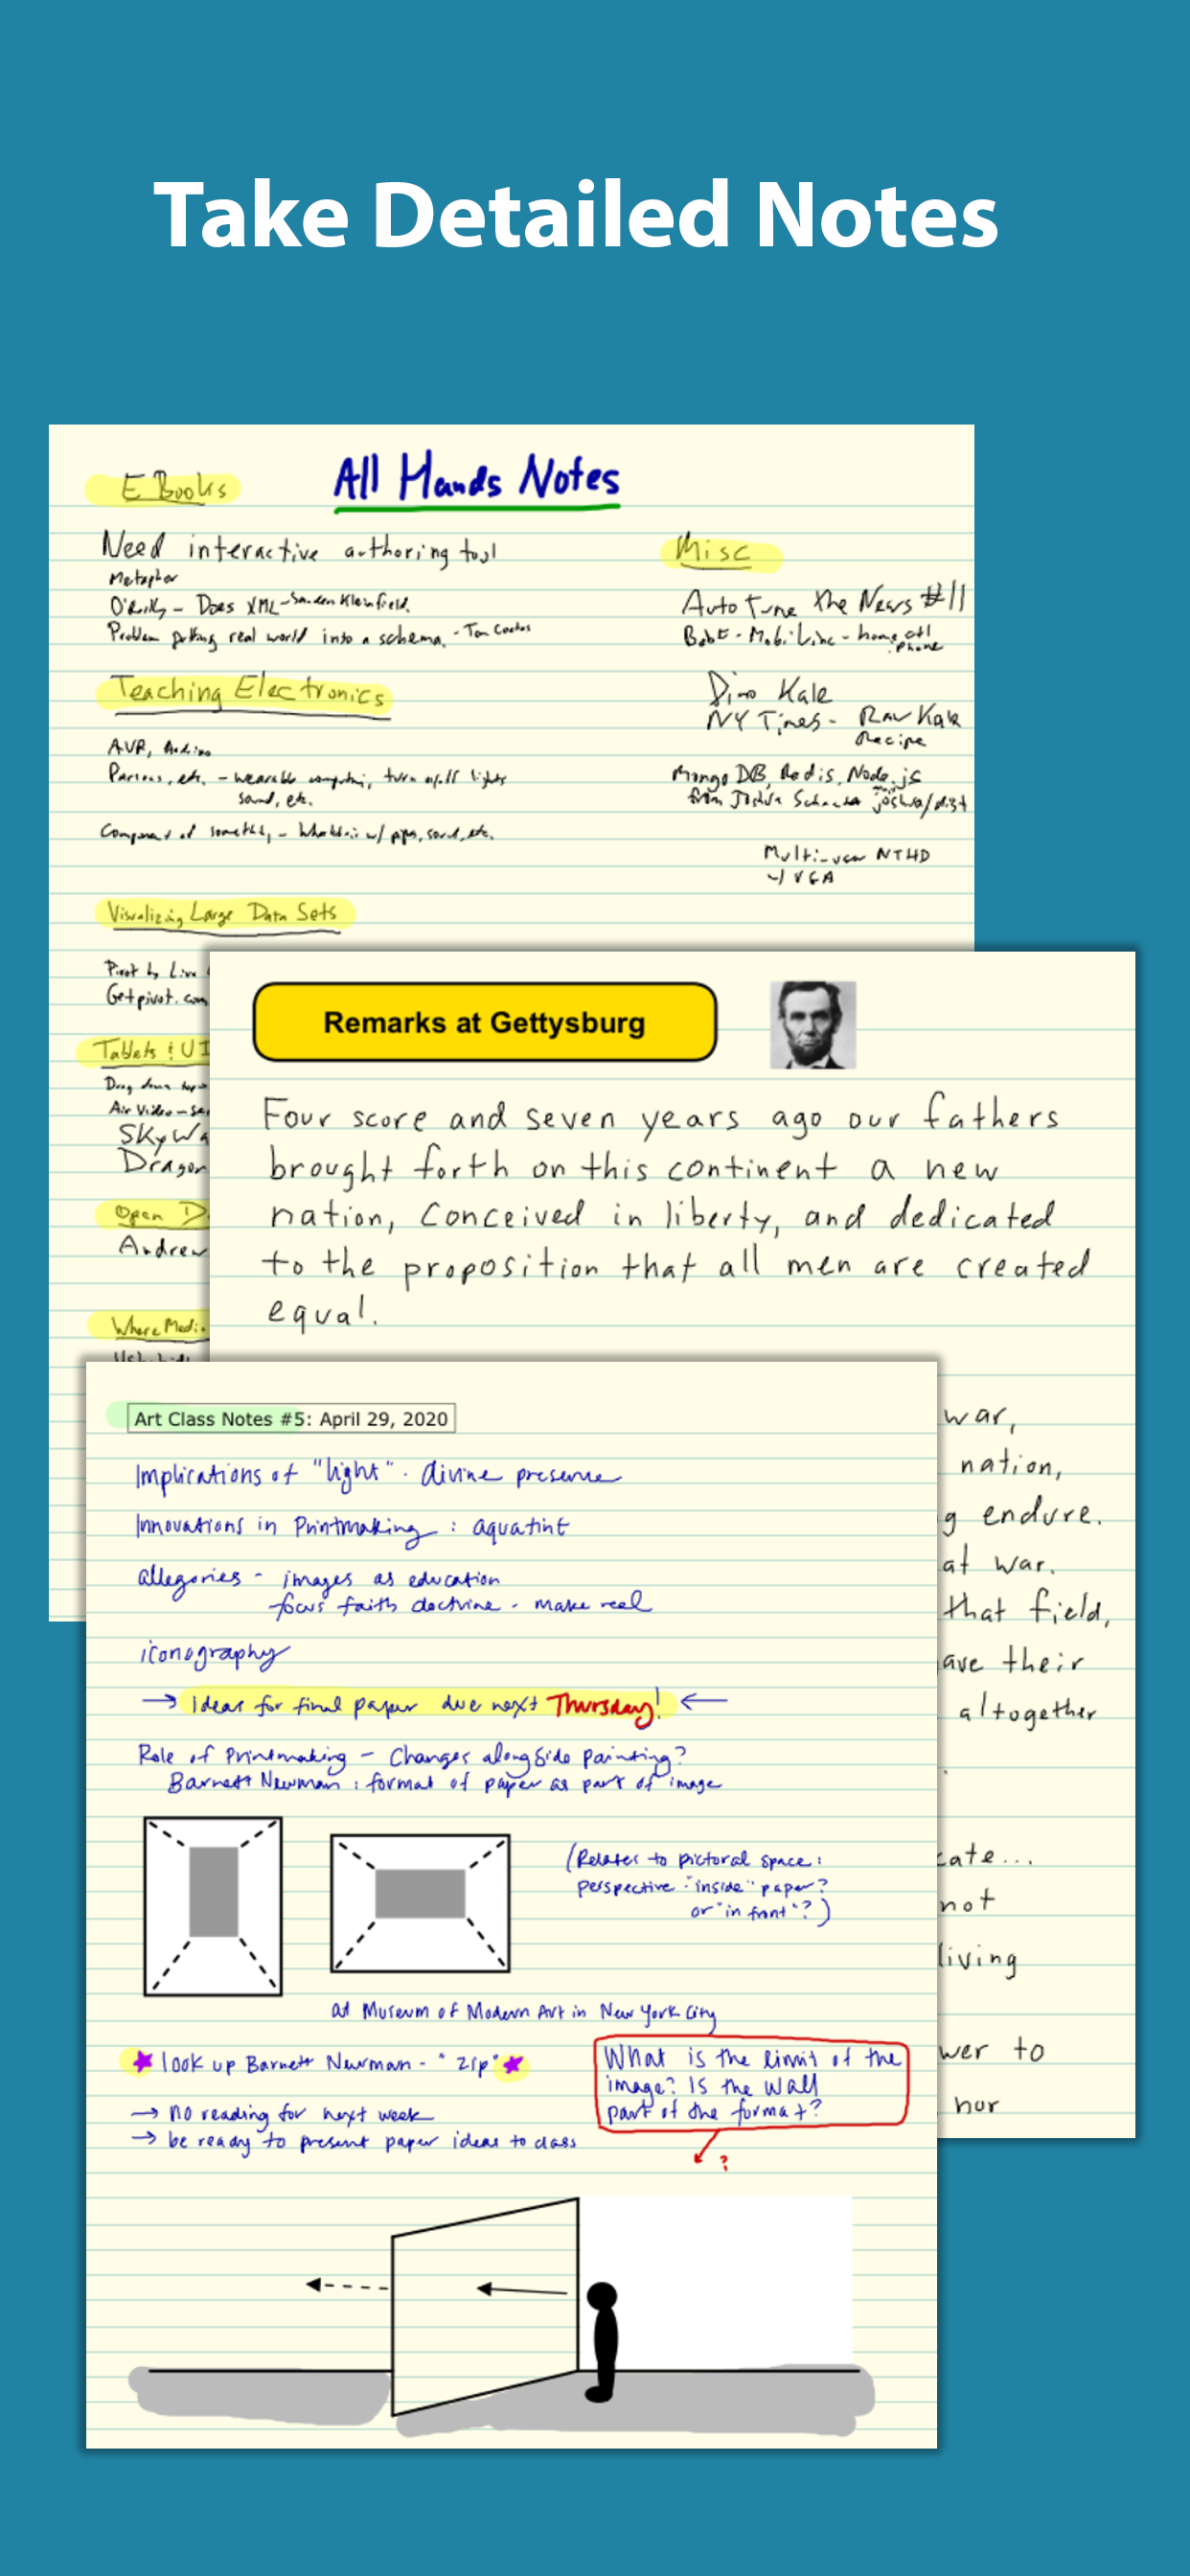 Take Detailed Notes
All Hands Notes
E Books
Need interactive authoring tool
Metaphor
O'Reilly - Does XML - Sanders Kleinfeld
Problem putting real world into a schema. - Tom
Teaching Electronics
AVR, Arduino
Parsons, etc. - wearable computing, turn on/off lights
sound, etc.
Component of something - w/ pipes, sound, etc.
Visualizing Large Data Sets
Pivot by Live
Getpivot.com
Tablets & UI
Drag down
Air Video - Ser
SkyWa
Dragon
Open D
Andrew
Where Medi
Ushahidi
Misc
Auto Tune the News #11
BobE - MobiLinc - home ctl
phone
Dino Kale
NY Times - Raw Kale
Recipe
Mongo DB, Redis, Node.js
from Joshua joshua/dist
Multi-user NTHD
w/ VGA
Remarks at Gettysburg
Four score and seven years ago our fathers
brought forth on this continent a new
nation, conceived in liberty, and dedicated
to the proposition that all men are created
equal.
war,
nation,
g endure.
at war.
that field,
ave their
altogether
.
cate...
not
living
wer to
nor
Art Class Notes #5: April 29, 2020
Implications of "light" - divine presence
Innovations in Printmaking : aquatint
allegories - images as education
focus faith doctrine - make real
iconography
→ Ideas for final paper due next Thursday! ←
Role of Printmaking - Changes alongside painting?
Barnett Newman : format of paper as part of image
(Relates to pictoral space:
perspective "inside" paper?
or "in front"?)
at Museum of Modern Art in New York City
look up Barnett Newman - "zip"
→ no reading for next week
→ be ready to present paper ideas to class
What is the limit of the
image? Is the wall
part of the format?
?